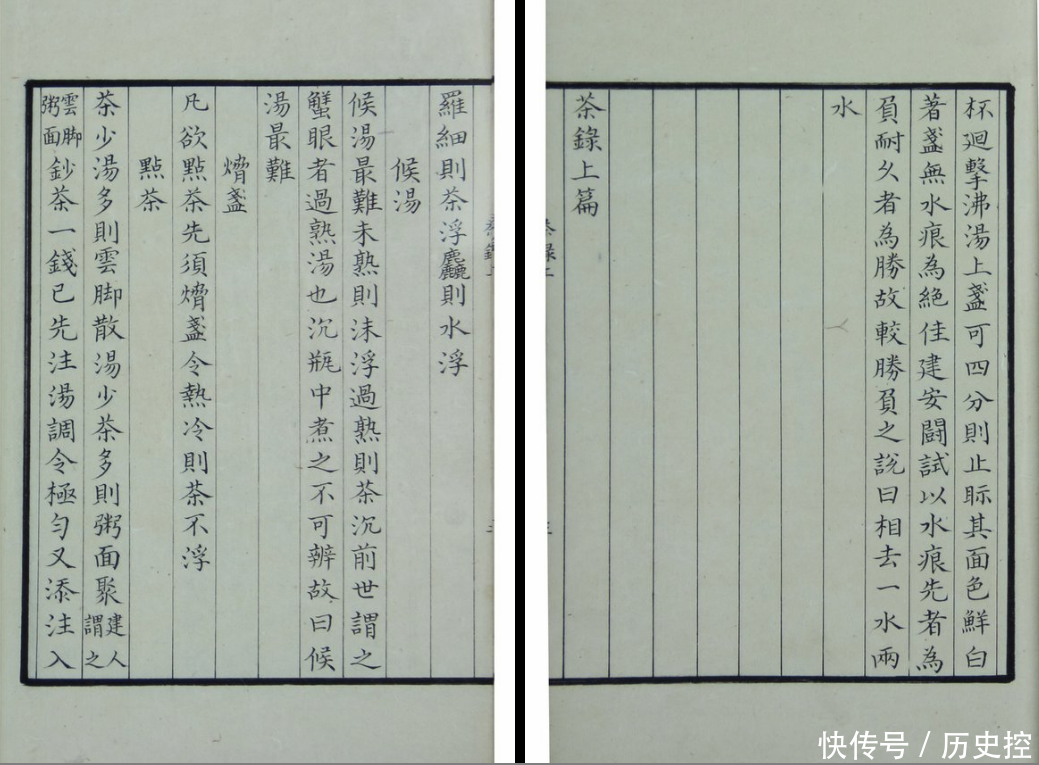 羅細則茶浮麤則水浮
候湯
候湯最難未熟則沫浮過熟則茶沉前世謂之
蟹眼者過熟湯也沉瓶中煮之不可辨故曰候
湯最難
熁盞
凡欲點茶先須熁盞令熱冷則茶不浮
點茶
茶少湯多則雲脚散湯少茶多則粥面聚建人謂之
雲脚粥面鈔茶一錢已先注湯調令極匀又添注入
杯廻擊沸湯上盞可四分則止眎其面色鮮白
著盞無水痕為絕佳建安闘試以水痕先者為
負耐久者為勝故較勝負之說曰相去一水兩
水
茶錄上篇
快传号 / 历史控